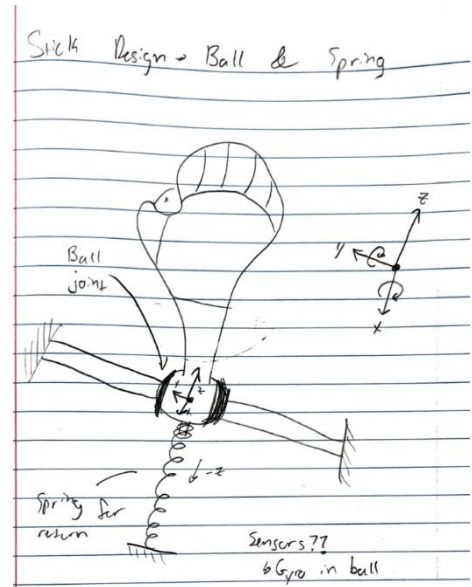 Stick Design - Ball & Spring
z
y
x
Ball
joint
z
-z
Spring for
return
Sensors??
↳ Gyro in ball